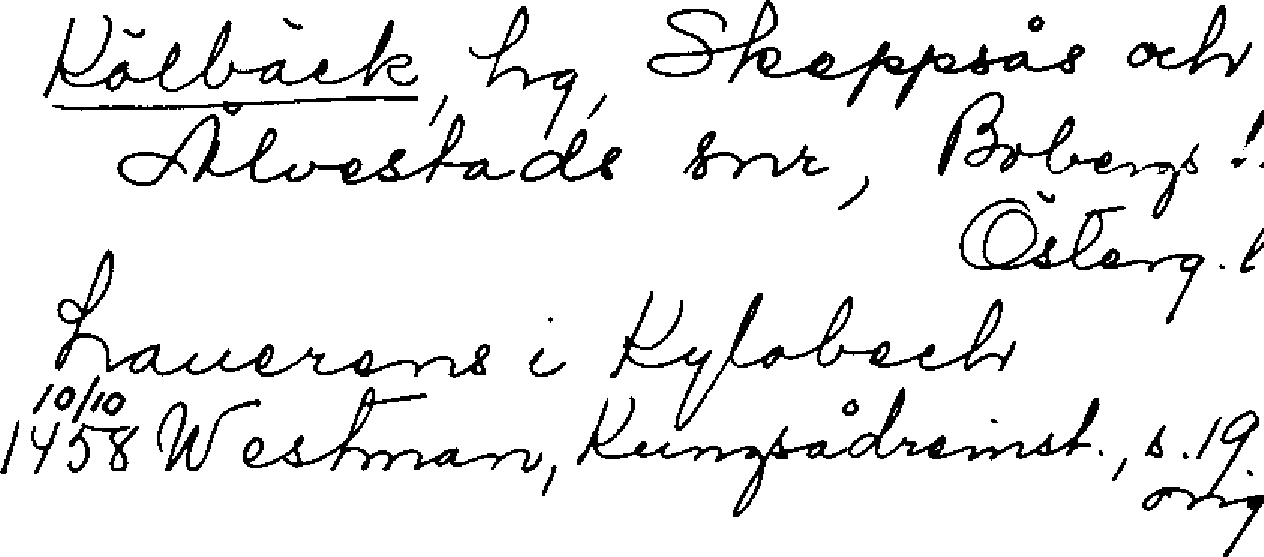 Kölbäck, hg, Skeppsås och
Älvestads snr, Bobergs
Österg. l
Lauerens i Kylobech
10/10
1458 Westman, Kungsådreinst., s. 19
orig